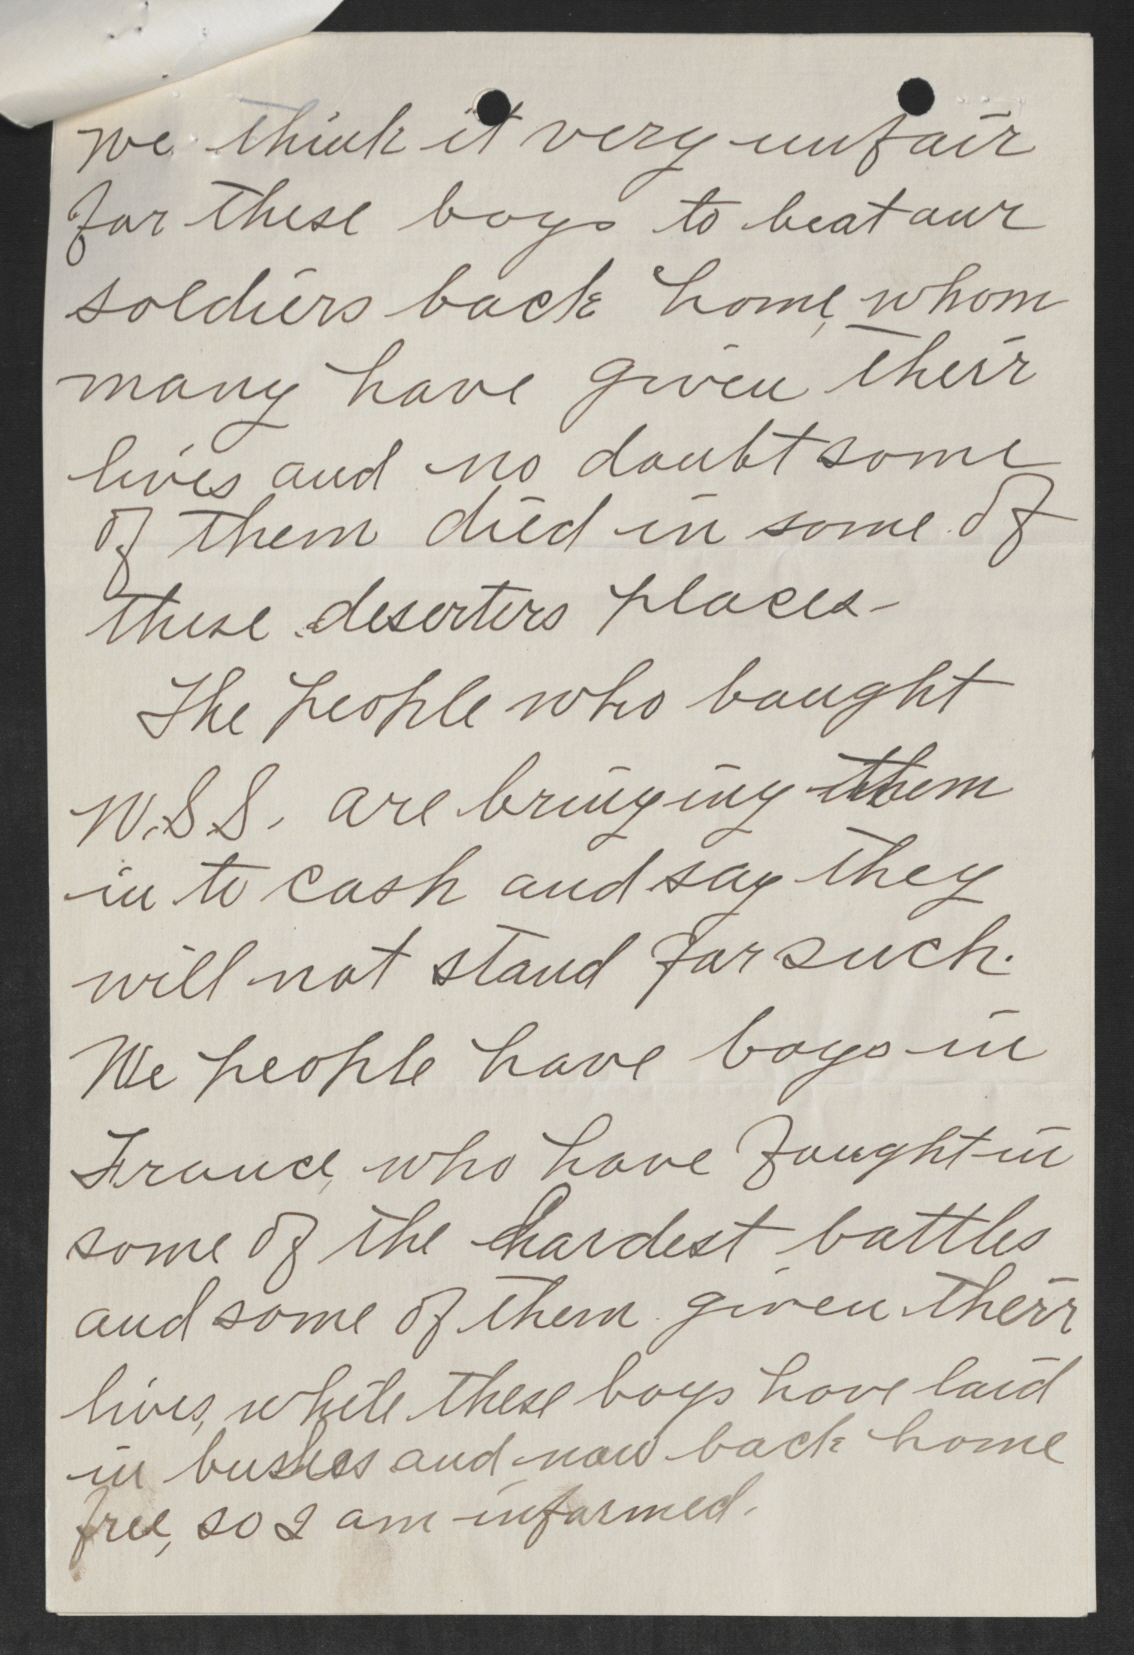 We think it very unfair
for these boys to beat our
soldiers back home, whom
many have given their
lives and no doubt some
of them died in some of
these deserters places-
The people who bought
W.S.S. are bringing them
in to cash and say they
will not stand for such.
We people have boys in
France, who have fought in
some of the hardest battles
and some of them given their
lives, while these boys have laid
in bushes and now back home
free, so I am informed.